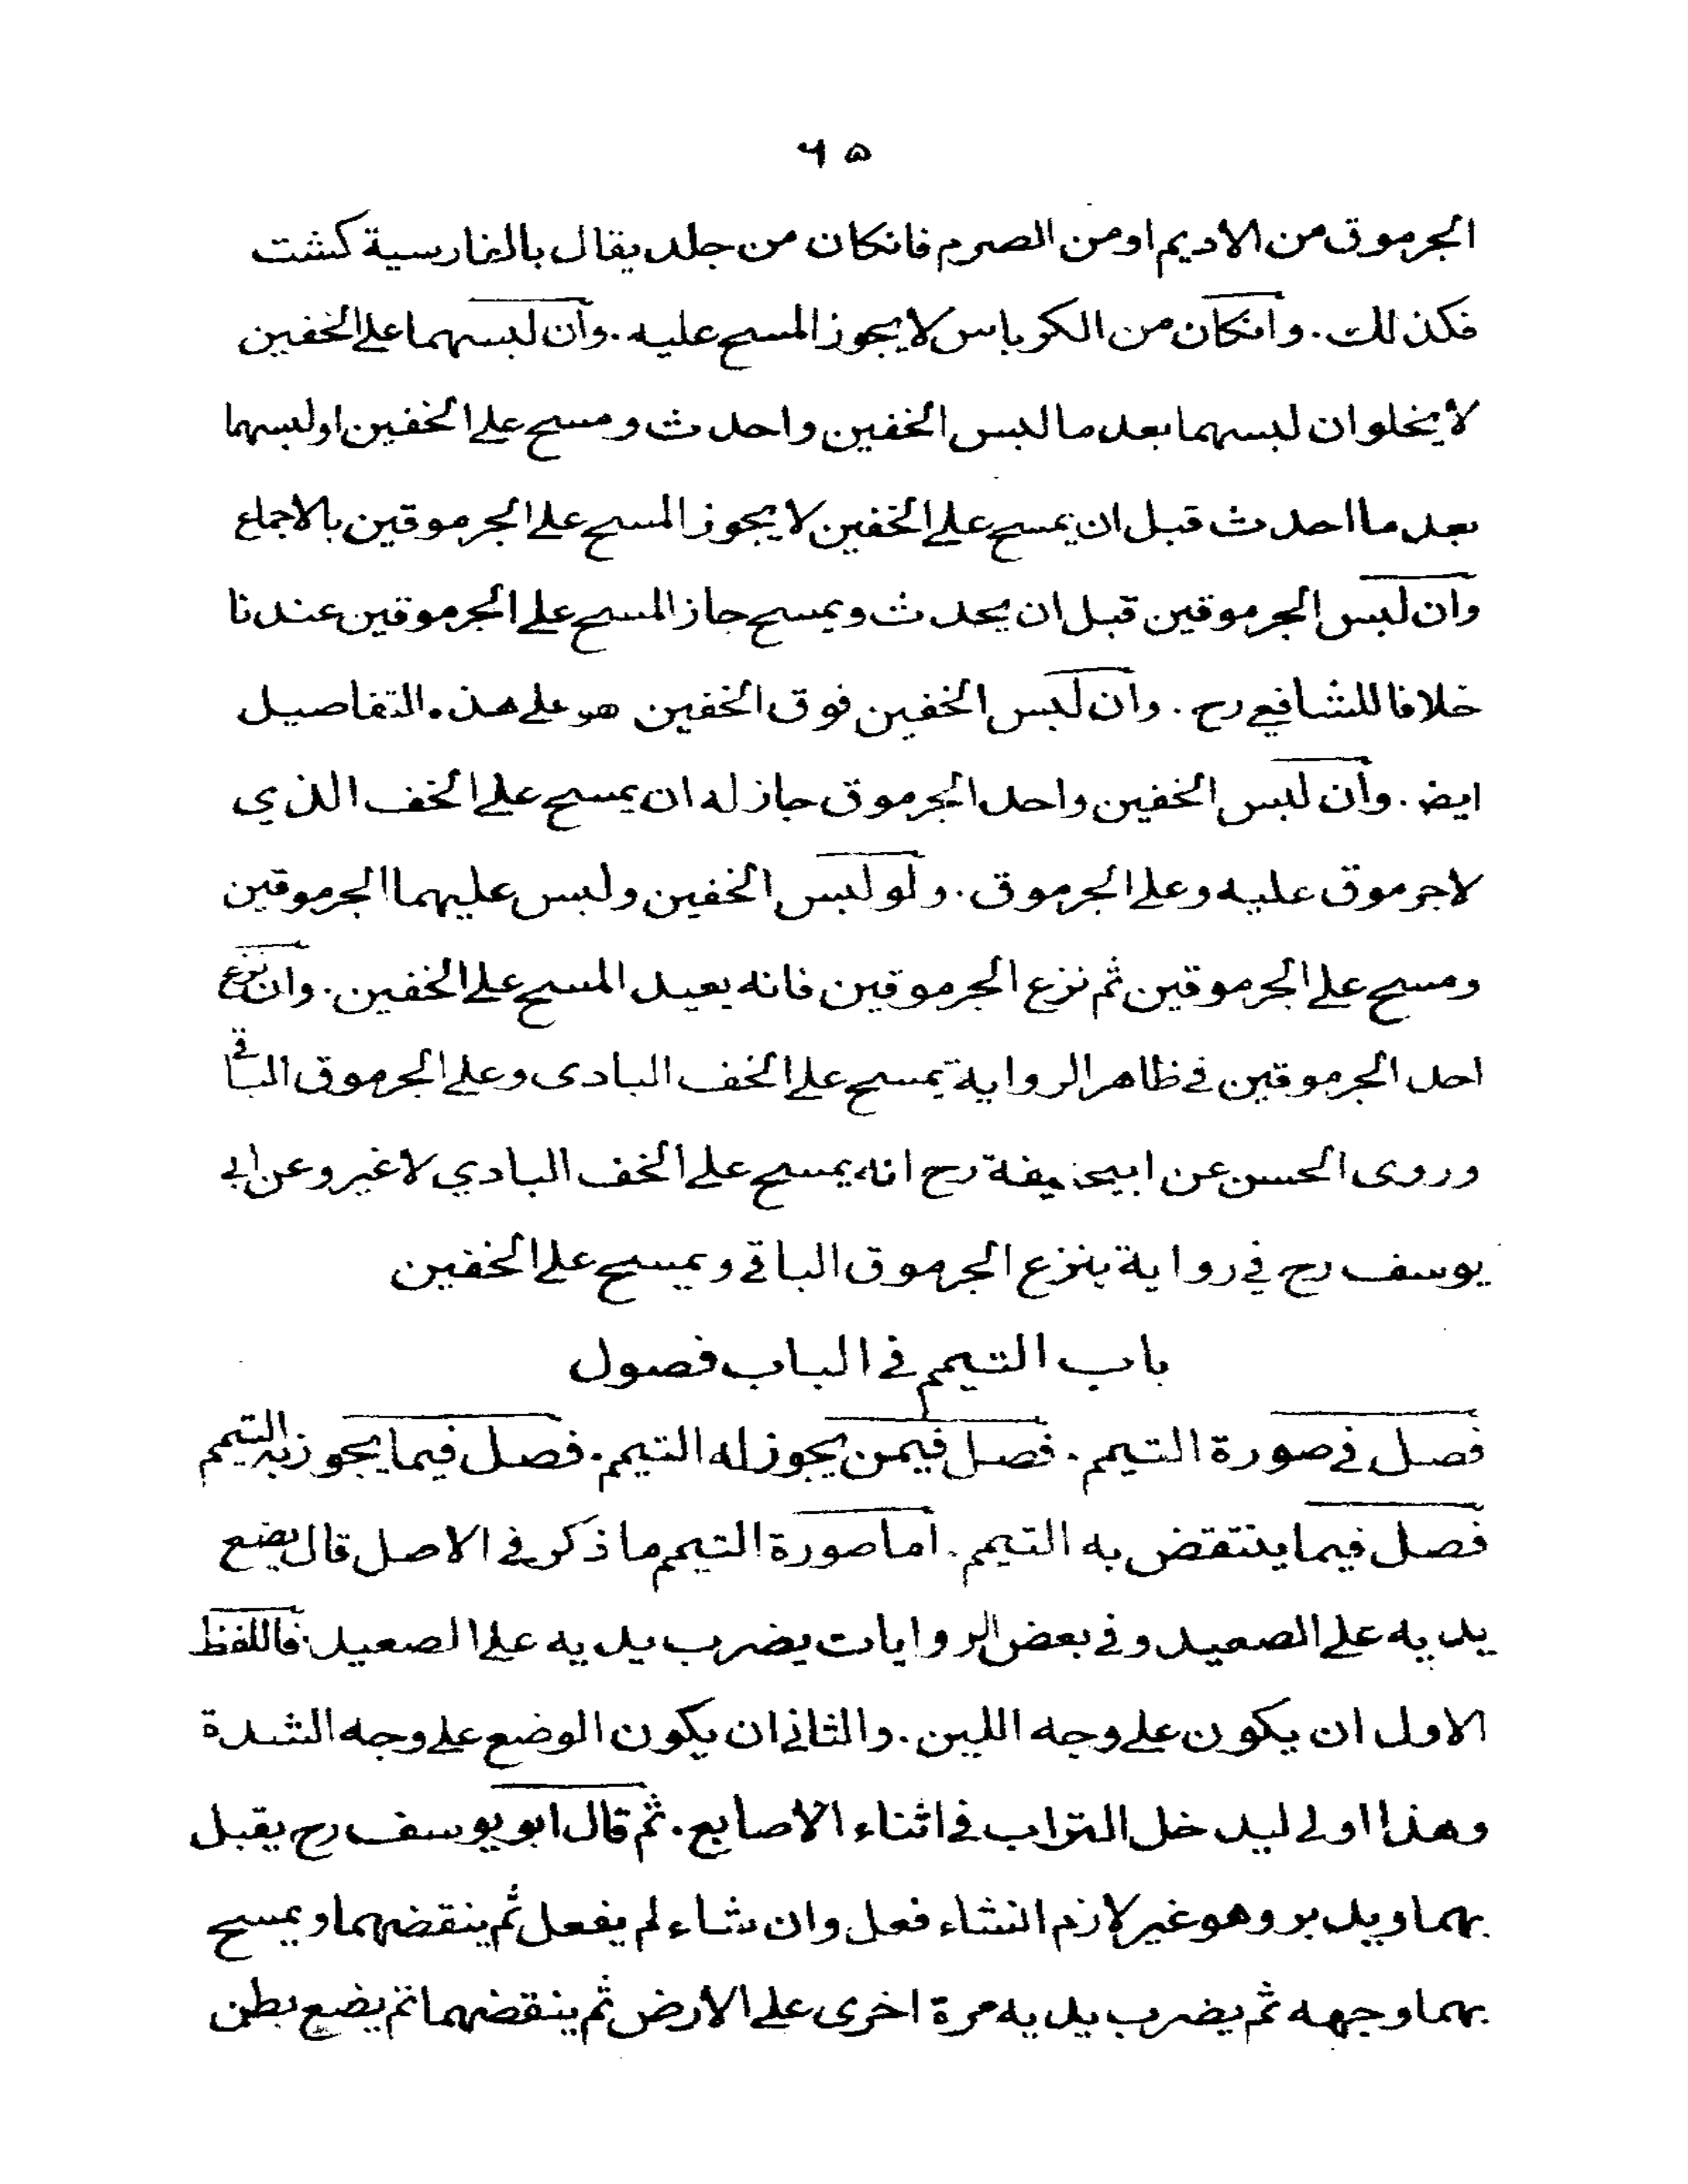 ۶۵
الجرموق من الاديم اومن الصرم فانكان من جلد يقال بالفارسية كشت
فكذلك . وانكان من الكرباس لا يجوز المسح عليه . وان لبسهما على الخفين
لا يخلو ان لبسهما بعد ما لبس الخفين واحدث ومسح على الخفين او لبسهما
بعد ما احدث قبل ان يمسح على الخفين لا يجوز المسح على الجرموقين بالاجماع
وان لبس الجرموقين قبل ان يحدث ويمسح جاز المسح على الجرموقين عندنا
خلافا للشافعي رح . وان لبس الخفين فوق الخفين هو على هذه التفاصيل
ايض . وان لبس الخفين واحد الجرموق جاز له ان يمسح على الخف الذي
لا جرموق عليه وعلى الجرموق . ولو لبس الخفين ولبس عليهما الجرموقين
ومسح على الجرموقين ثم نزع الجرموقين فانه يعيد المسح على الخفين . وان نزع
احد الجرموقين في ظاهر الرواية يمسح على الخف البادى وعلى الجرموق الباقي
وروى الحسن عن ابيحنيفة رح انه يمسح على الخف البادي لا غير وعن ابي
يوسف رح في رواية ينزع الجرموق الباقي ويمسح على الخفين
باب التيمم في الباب فصول
فصل في صورة التيمم . فصل فيمن يجوز له التيمم . فصل فيما يجوز به التيمم
فصل فيما ينتقض به التيمم . اما صورة التيمم ما ذكر في الاصل قال يضع
يديه على الصعيد وفي بعض الروايات يضرب يديه على الصعيد . فاللفظ
الاول ان يكون على وجه اللين . والثاني ان يكون الوضع على وجه الشدة
وهذا اولى ليدخل التراب في اثناء الاصابع . ثم قال ابو يوسف رح يقبل
بهما ويدبر وهو غير لازم انشاء فعل وان شاء لم يفعل ثم ينفضهما ويمسح
بهما وجهه ثم يضرب يديه مرة اخرى على الارض ثم ينفضهما ثم يضع بطن